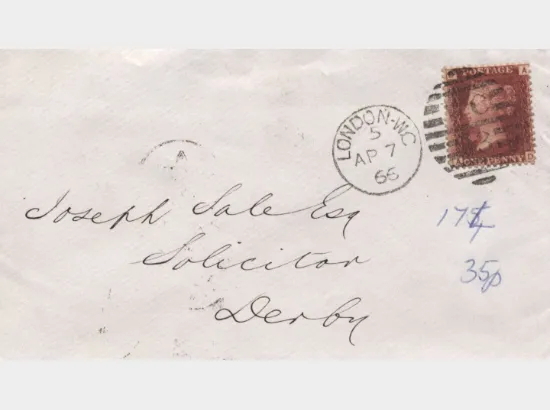 POSTAGE
A
ONE PENNY
LONDON-W.C
5
AP 7
66
A
Joseph Sale Esq
Solicitor
Derby
174
35p